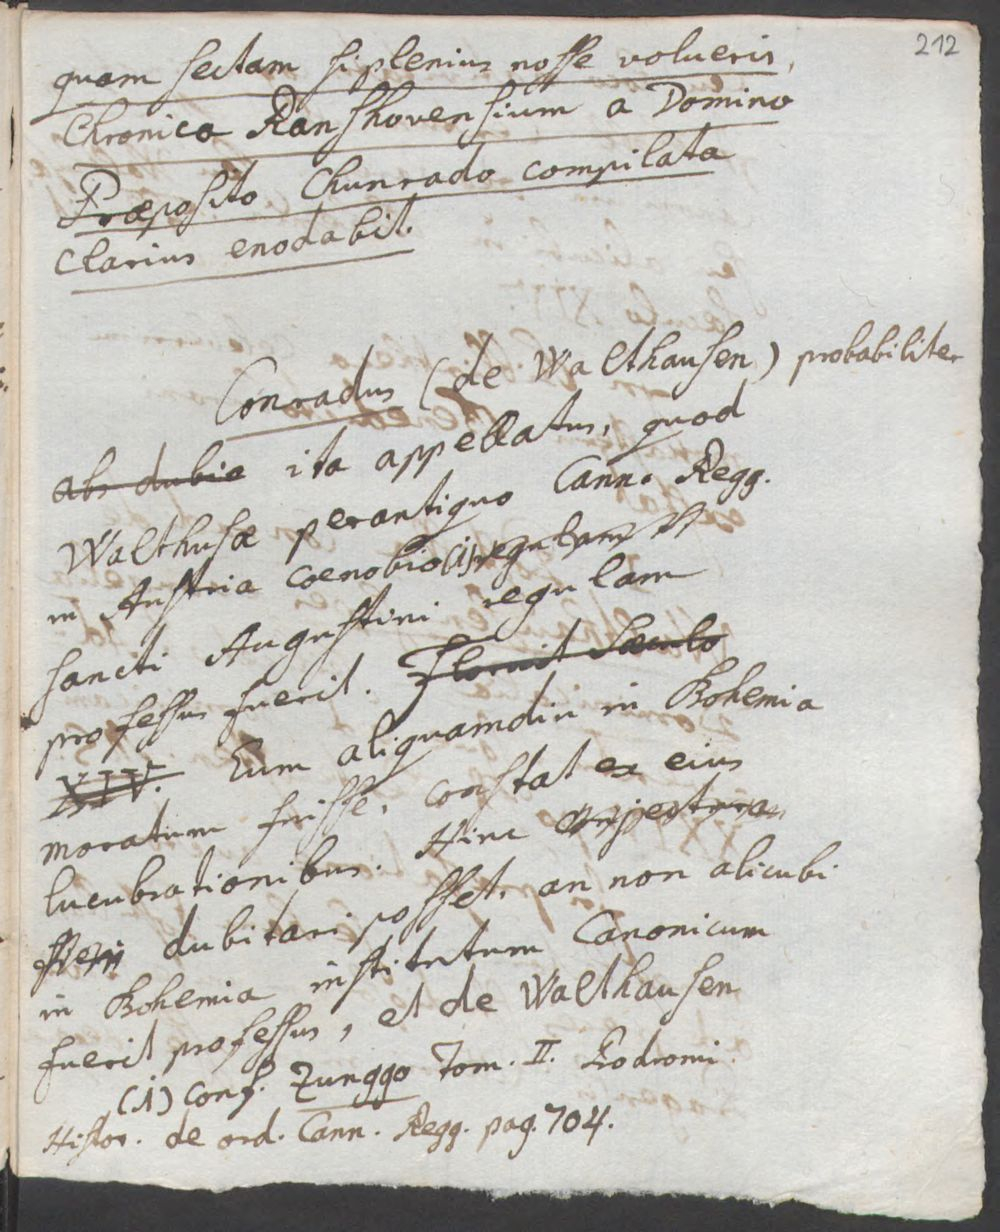 212
quam sectam si plenius nosse volueris,
Chronica Ranshovensium a Domino
Præposito Chunrado compilata
clarius enodabit.
Conradus (de Walthausen) probabiliter
abs dubio ita appellatus, quod
Walthusæ perantiquo Cann. Regg.
in Austria coenobio (1) regulam
sancti Augustini regulam
professus fuerit. Floruit Sæculo
XIV. Eum aliquamdiu in Bohemia
moratum fuisse, constat ex eius
lucubrationibus. Hinc conjectura
fieri dubitari posset, an non alicubi
in Bohemia institutum Canonicum
fuerit professus, et de Walthausen
(1) conf. Zunggo Tom. II. Prodromi
Histor. de ord. Cann. Regg. pag. 704.